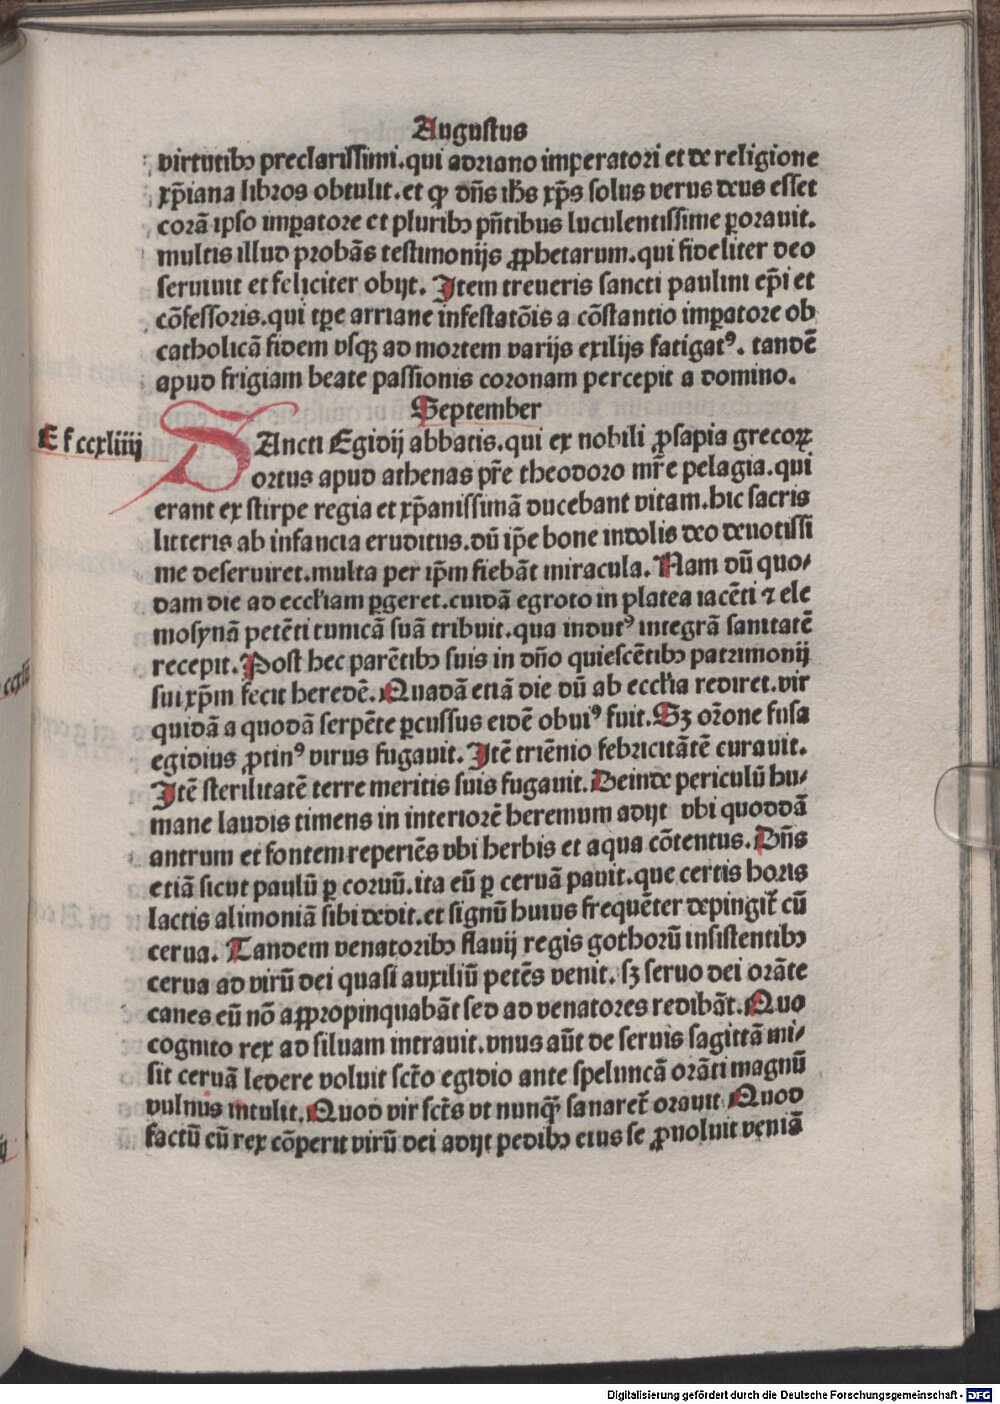 Augustus
virtutibꝫ preclarissimi.qui adriano imperatori et de religione
xp̄iana libros obtulit.et ꝙ dn̄s ihs̄ xp̄s solus verus deus esset
corā ipso imꝑatore et pluribꝫ pn̄tibus luculentissime ꝑorauit.
multis illud probās testimonijs ꝓphetarum.qui fideliter deo
seruiuit et feliciter obijt. Item treueris sancti paulini ep̄i et
cōfessoris.qui tꝑe arriane infestatōis a cōstantio imꝑatore ob
catholicā fidem vsqꝫ ad mortem varijs exilijs fatigatꝰ. tandē
apud frigiam beate passionis coronam percepit a domino.
September
E f ccxliiij
SAncti Egidij abbatis.qui ex nobili ꝓsapia grecoꝝ
ortus apud athenas pr̄e theodoro mr̄e pelagia.qui
erant ex stirpe regia et xp̄anissimā ducebant vitam.hic sacris
litteris ab infancia eruditus.dū ip̄e bone indolis deo deuotissi
me deseruiret.multa per ip̄m fiebāt miracula. Nam dū quo⸗
dam die ad eccl̄iam ꝑgeret.cuidā egroto in platea iacēti ⁊ ele
mosynā petēti tunicā suā tribuit.qua indutꝰ integrā sanitatē
recepit. Post hec parētibꝫ suis in dn̄o quiescētibꝫ patrimonij
sui xp̄m fecit heredē. Quadā etiā die dū ab eccl̄ia rediret.vir
quidā a quodā serpēte ꝑcussus eidē obuiꝰ fuit. Sꝫ or̄one fusa
egidius ꝓtinꝰ virus fugauit. Itē triēnio febricitātē curauit.
Itē sterilitatē terre meritis suis fugauit. Deinde periculū hu⸗
mane laudis timens in interiorē heremum adijt vbi quoddā
antrum et fontem reperiēs vbi herbis et aqua cōtentus. Dn̄s
etiā sicut paulū ꝑ coruū.ita eū ꝑ ceruā pauit.que certis horis
lactis alimoniā sibi dedit.et signū huius frequēter depingit̄ cū
cerua. Tandem venatoribꝫ flauij regis gothorū insistentibꝫ
cerua ad virū dei quasi auxiliū petēs venit. sꝫ seruo dei orāte
canes eū nō aꝓpropinquabāt sed ad venatores redibāt. Quo
cognito rex ad siluam intrauit.vnus aūt de seruis sagittā mi⸗
sit ceruā ledere voluit sct̄o egidio ante speluncā orāti magnū
vulnus intulit. Quod vir sct̄s vt nunqꝫ̄ sanaret̄ orauit Quod
factū cū rex cōperit virū dei adijt pedibꝫ eius se ꝓuoluit veniā
Digitalisierung gefördert durch die Deutsche Forschungsgemeinschaft - DFG